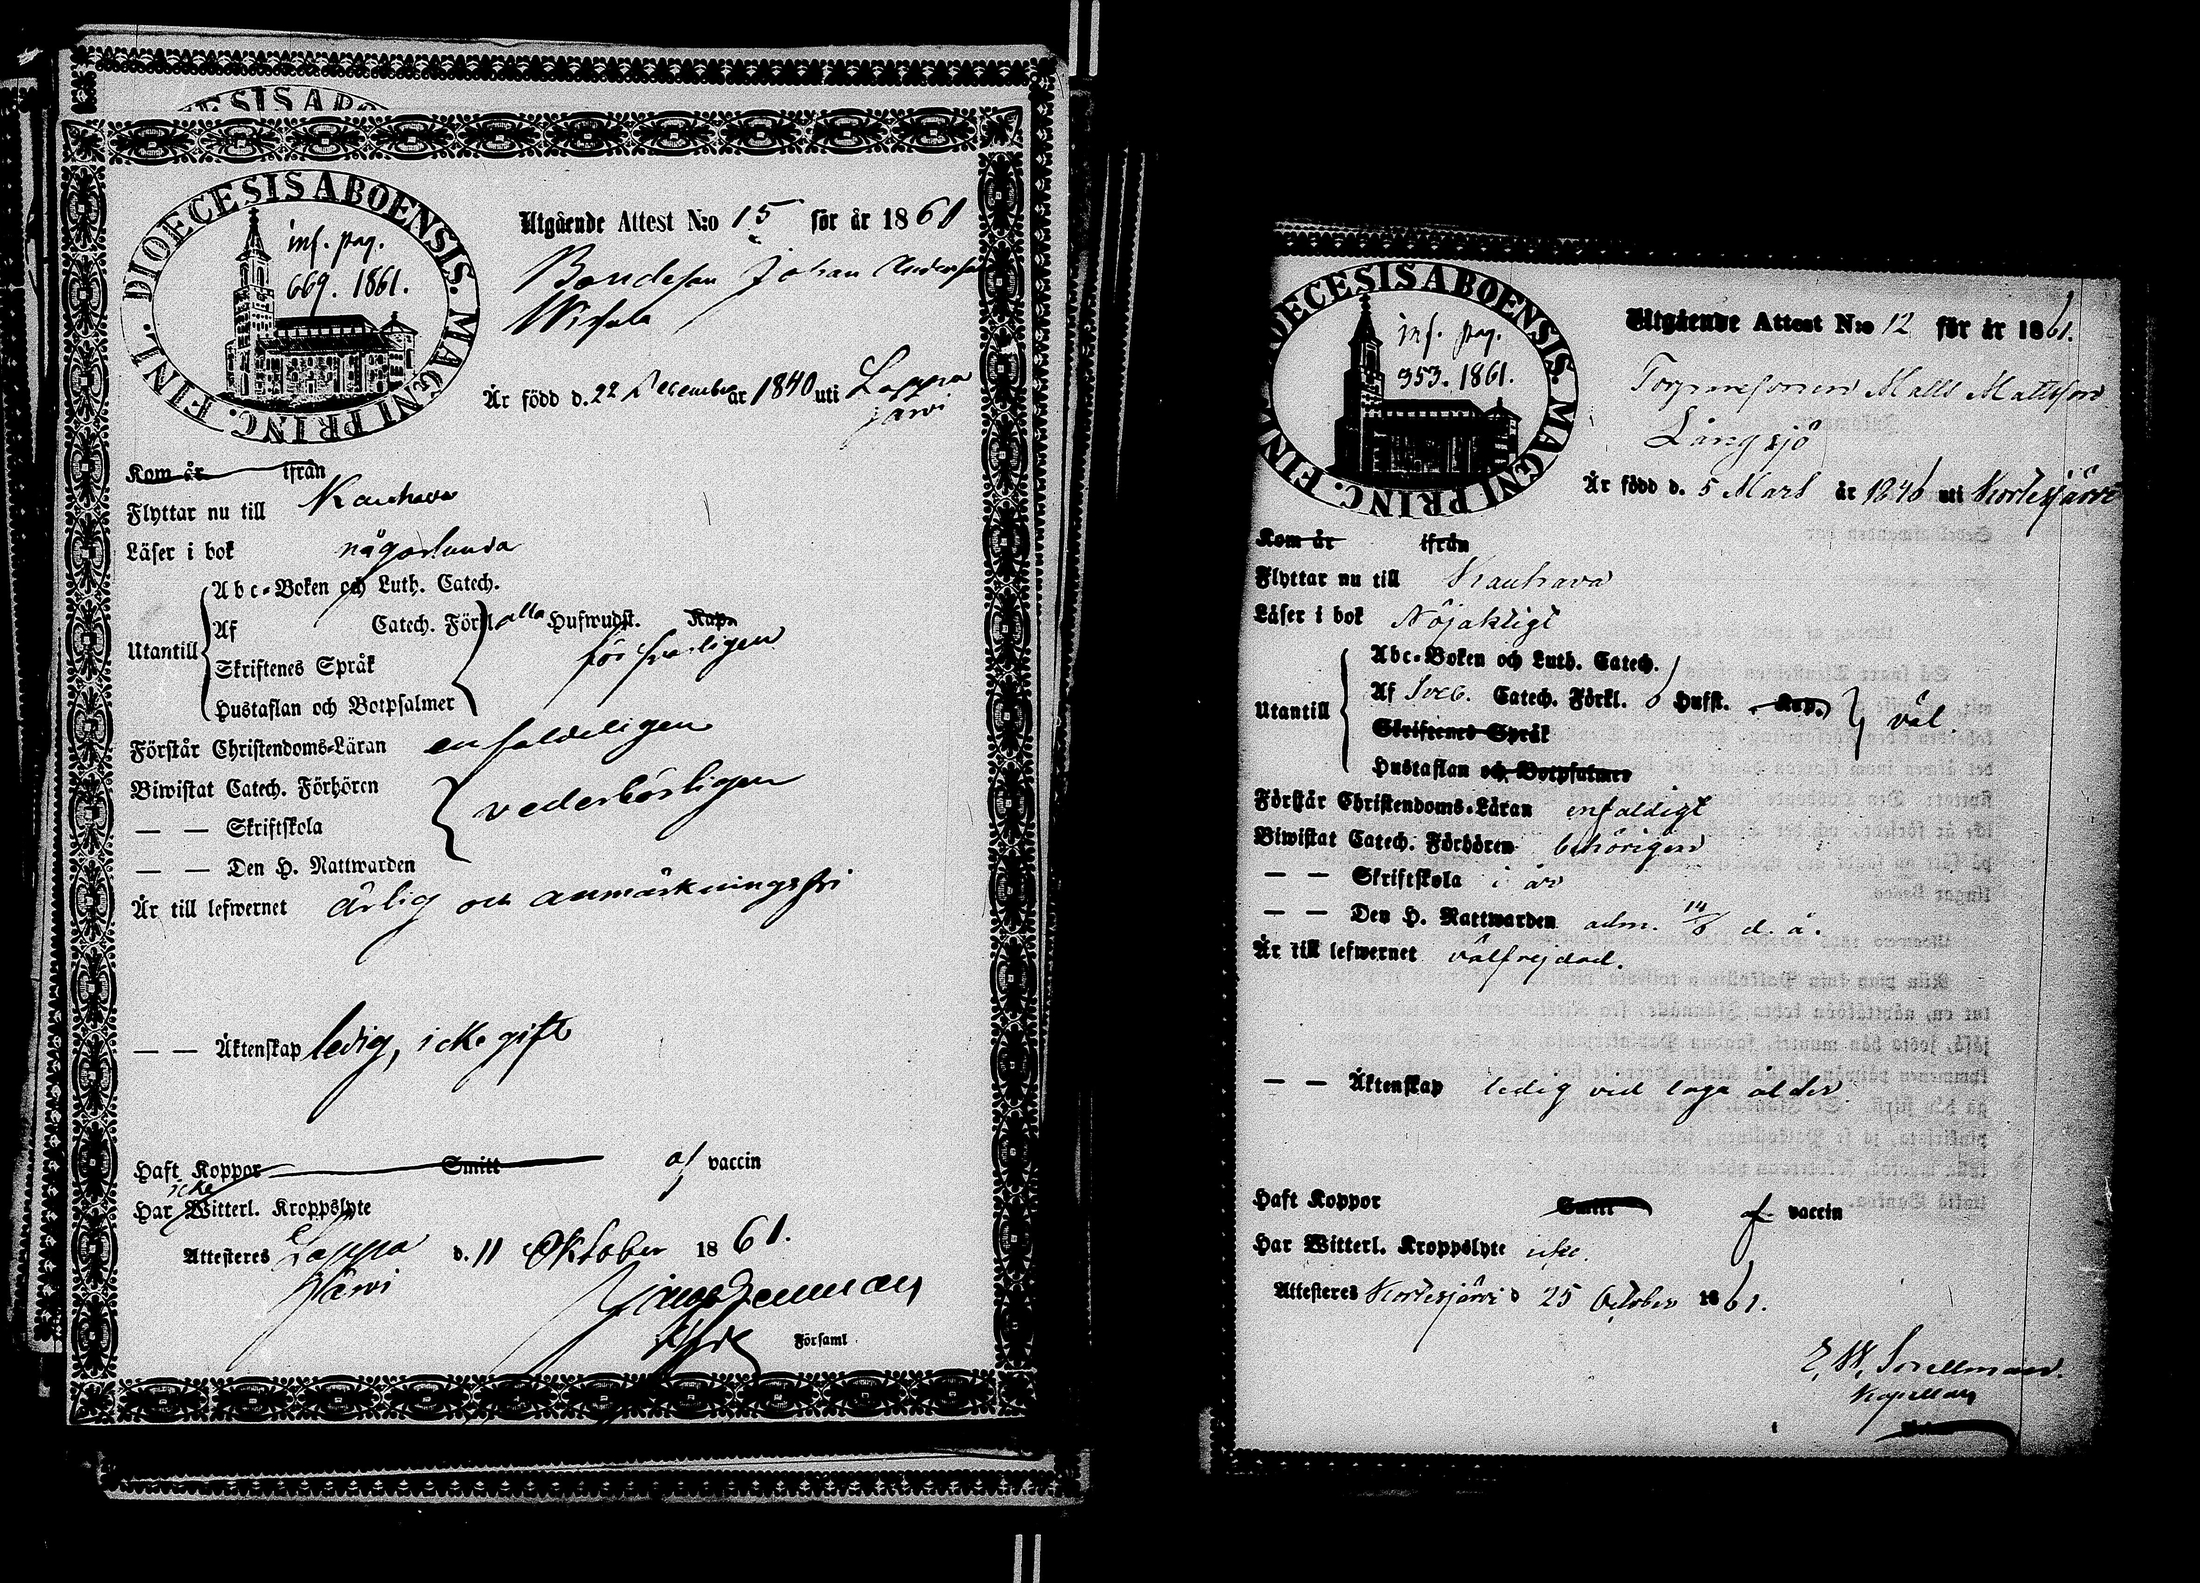 DIOECESIS ABO
DIOECESIS ABOENSIS. MAGNI PRINC. FINL.
inf. pag.
669. 1861.
Utgående Attest N:o 15 för år 1861
Bondeson Johan Andersson
Wisala
Är född d. 22 December år 1840 uti Lappo
järvi
Kom år ifrån
Flyttar nu till Kauhava
Läser i bok någorlunda
Utantill
Abc-Boken och Luth. Catech.
Af Catech. Förkl. alla Hufwudst. Kap.
Skriftenes Språk
försvarligen
Hustaflan och Botpsalmer
Förstår Christendoms-Läran enfaldeligen
Biwistat Catech. Förhören
— — Skriftskola
vederbörligen
— — Den H. Nattwarden
Är till lefwernet ärlig och anmärkningsfri
— — Äktenskap ledig, icke gift
Haft Koppor Smitt af vaccin
icke
Har Witterl. Kroppslyte
Attesteres Lappo d. 11 Oktober 1861.
järvi
Församl
DIOECESIS ABOENSIS. MAGNI PRINC. FINL.
inf. pag.
353. 1861.
Utgående Attest N:o 12 för år 1861.
Torparesonen Matts Mattsson
Långsjö
Är född d. 5 Mars år 1846 uti Kortesjärvi
Kom år ifrån
Flyttar nu till Kauhava
Läser i bok Nöjaktigt
Utantill
Abc-Boken och Luth. Catech.
Af Sveb. Catech. Förkl. Hufst. Kap.
väl
Skriftenes Språk
Hustaflan och Botpsalmer
Förstår Christendoms-Läran enfaldigt
Biwistat Catech. Förhören behörigen
— — Skriftskola i år
— — Den H. Nattwarden adm. d. å.
Är till lefwernet välfrejdad.
— — Äktenskap ledig vid laga ålder
Haft Koppor Smitt af vaccin
Har Witterl. Kroppslyte icke.
Attesteres Kortesjärvi d 25 October 1861.
E. W. Snellman.
Kapellan